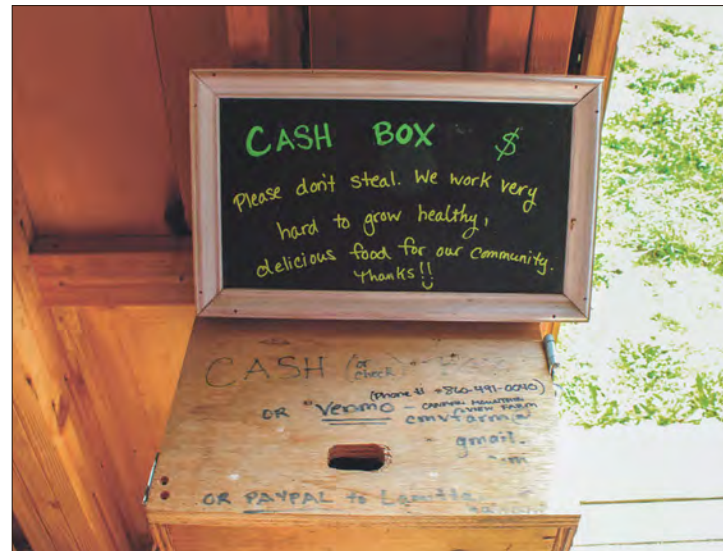 CASH BOX $
Please don't steal. We work very
hard to grow healthy,
delicious food for our community.
Thanks!!
CASH (or check)
(Phone #: 860-491-0040)
OR Venmo - CANAAN MOUNTAIN
VIEW FARM
cmvfarm@
gmail.
OR PAYPAL to